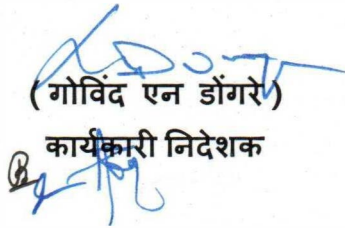 ( गोविंद एन डोंगरे )
कार्यकारी निदेशक